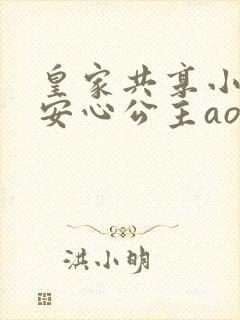 皇家共享小
安心公主ao
洪小明